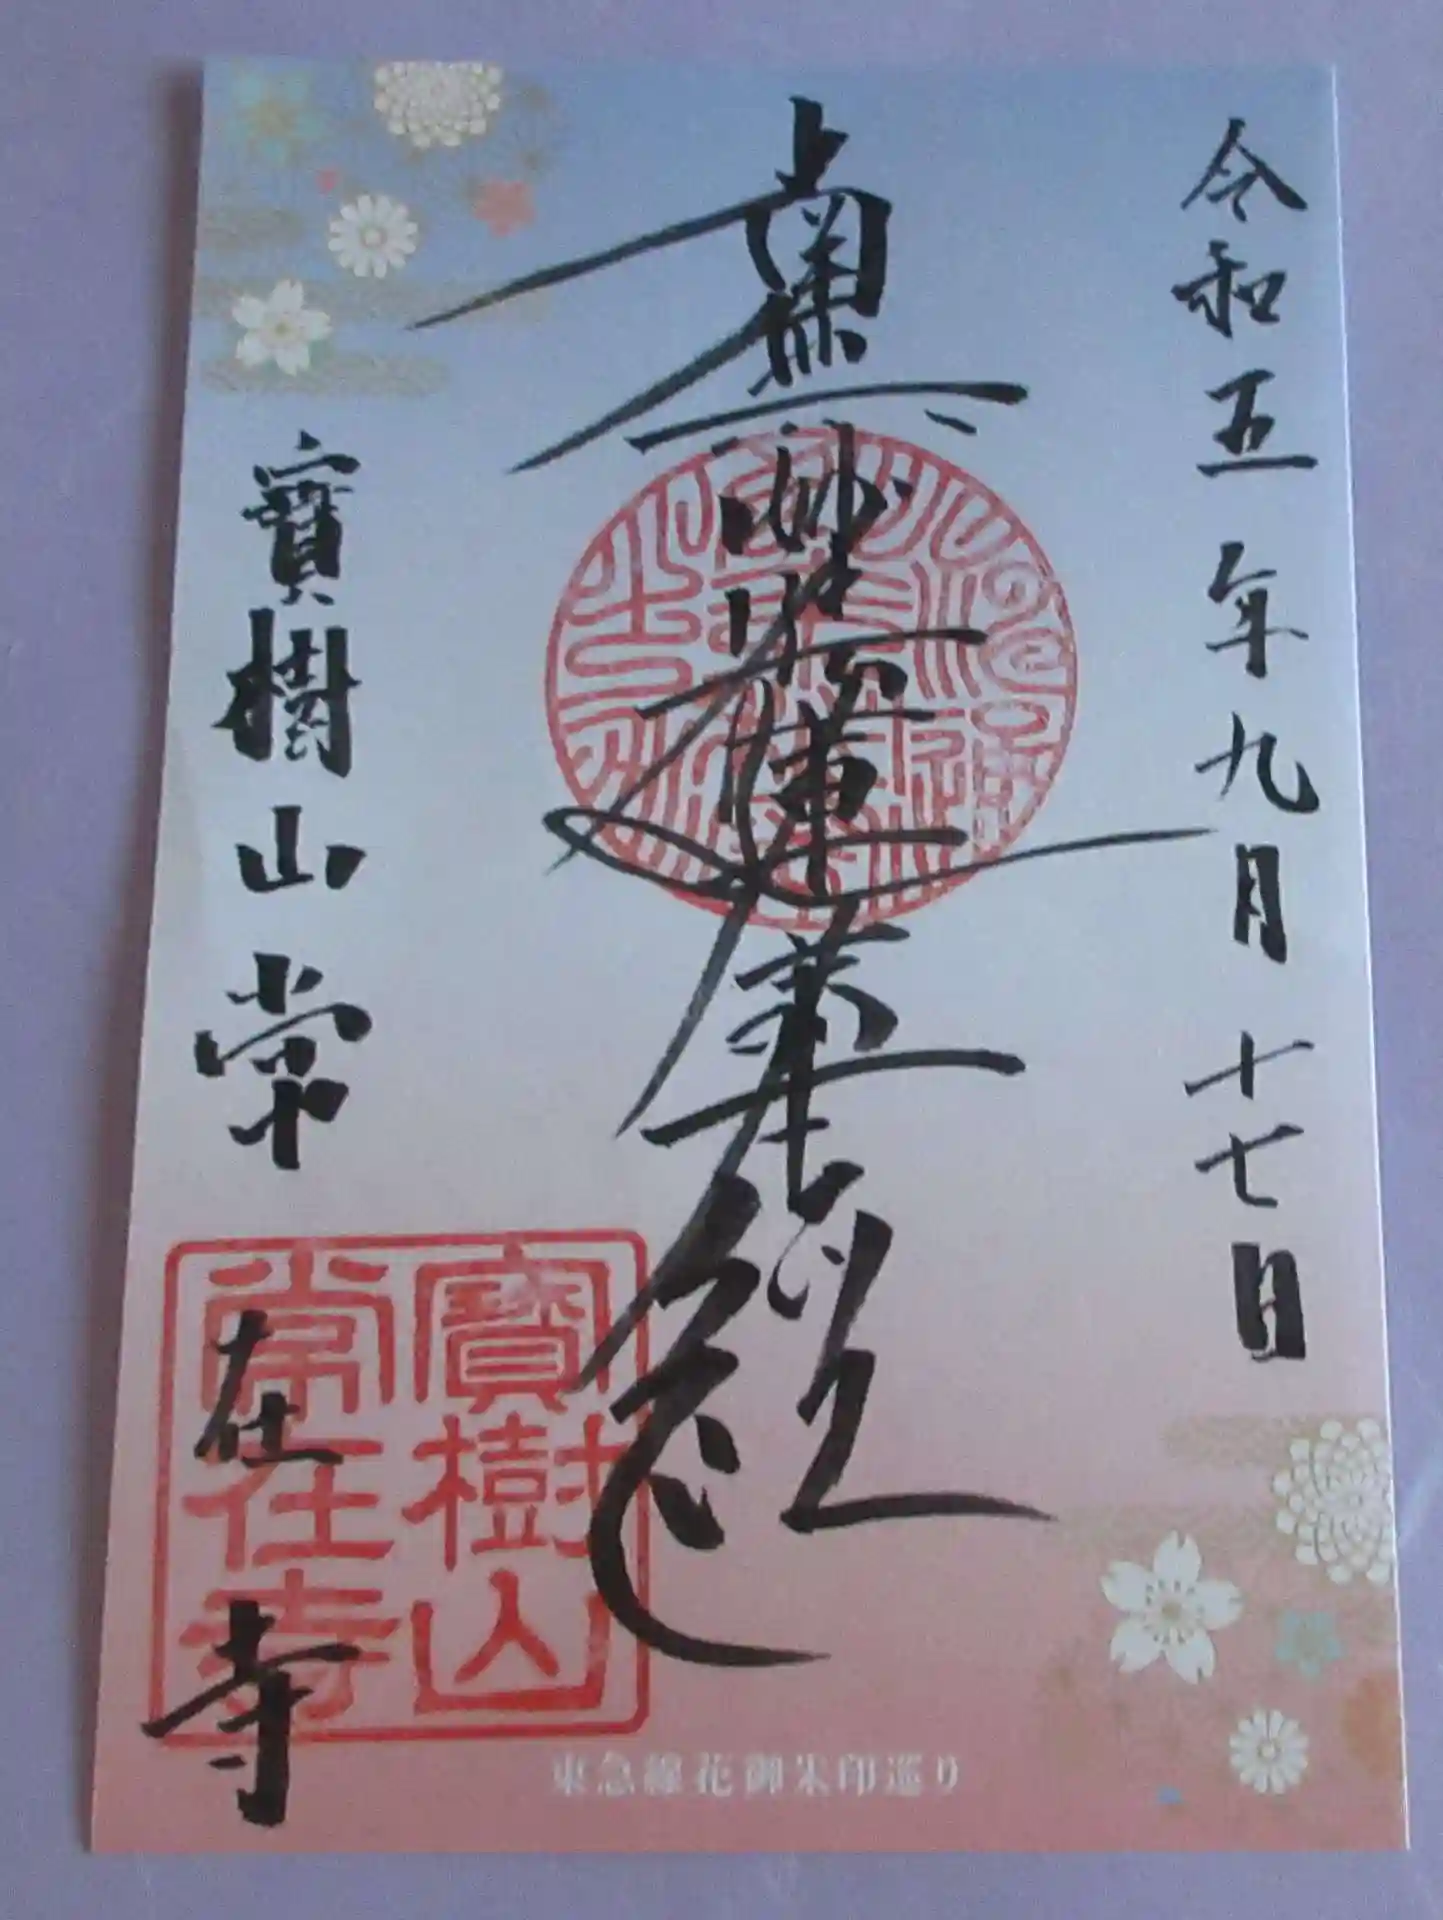 令和五年九月十七日
南無妙法蓮華経
寳樹山常在寺
寳樹山
常在寺
東急線花御朱印巡り